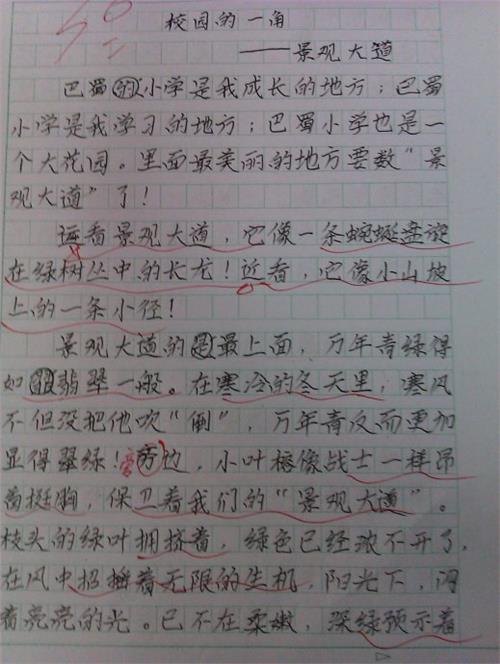 校园的一角
——景观大道
巴蜀的小学是我成长的地方；巴蜀
小学是我学习的地方；巴蜀小学也是一
个大花园。里面最美丽的地方要数“景
观大道”了！
远看景观大道，它像一条蜿蜒盘旋
在绿树丛中的长龙！近看，它像小山坡
上的一条小径！
景观大道的是最上面，万年青绿得
如翡翠一般。在寒冷的冬天里，寒风
不但没把他吹“倒”，万年青反而更加
显得翠绿！旁边，小叶榕像战士一样昂
首挺胸，保卫着我们的“景观大道”。
枝头的绿叶拥挤着，绿色已经浓不开了，
在风中招摇着无限的生机，阳光下，闪
着亮亮的光。已不在柔嫩，深绿预示着